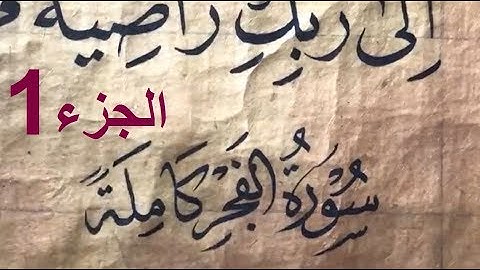 إِلَى رَبِّكِ رَاضِيَة
الجزء 1
سُورَةُ الفَجْرِ كَامِلَةً